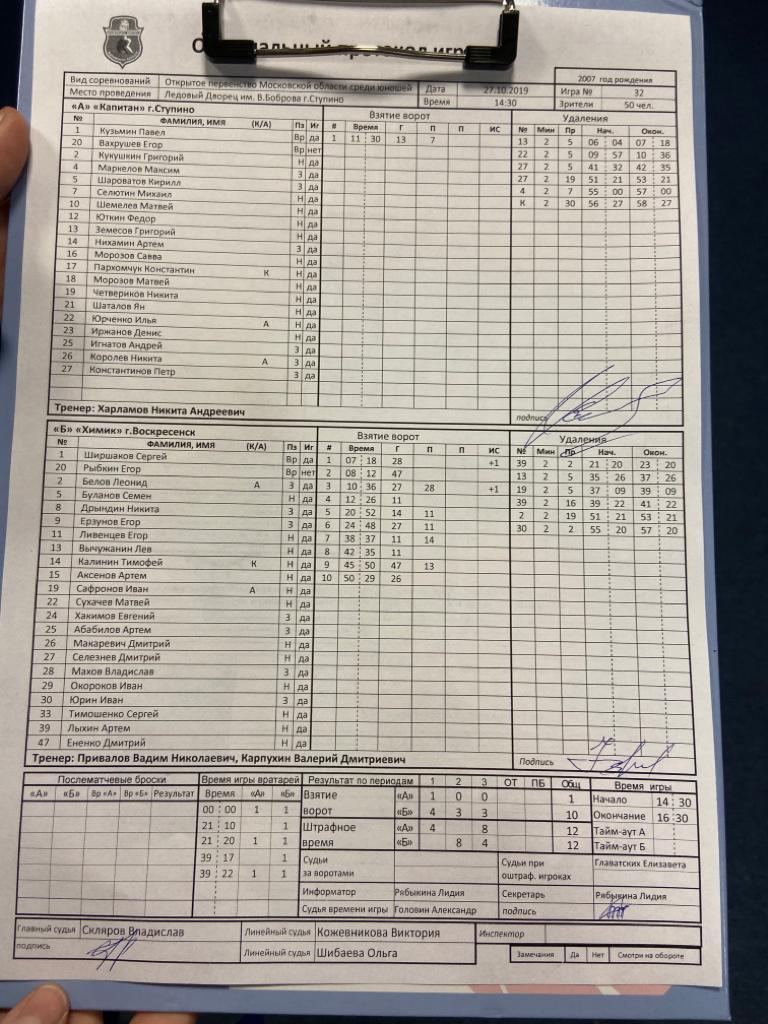 2007 год рождения
Вид соревнований Открытое первенство Московской области среди юношей Дата 27.10.2019 Игра № 32
Место проведения Ледовый Дворец им. В.Боброва г.Ступино Время 14:30 Зрители 50 чел.
«А» «Капитан» г.Ступино Взятие ворот Удаления
№ ФАМИЛИЯ, ИМЯ (К/А) Пз Иг # Время Г П П ИС № Мин Пр Нач. Окон.
1 Кузьмин Павел Вр да 1 11 30 13 7 13 2 5 06 04 07 18
20 Вахрушев Егор Вр нет 22 2 5 09 57 10 36
2 Кукушкин Григорий Н да 27 2 5 41 32 42 35
4 Маркелов Максим З да 27 2 19 51 21 53 21
5 Шароватов Кирилл З да 4 2 7 55 00 57 00
7 Селютин Михаил Н да К 2 30 56 27 58 27
10 Шемелев Матвей Н да
12 Юткин Федор Н да
13 Земесов Григорий Н да
14 Нихамин Артем З да
16 Морозов Савва Н да
17 Пархомчук Константин К Н да
18 Морозов Матвей Н да
19 Четвериков Никита Н да
21 Шаталов Ян Н да
22 Юрченко Илья А Н да
23 Иржанов Денис Н да
25 Игнатов Андрей З да
26 Королев Никита А З да
27 Константинов Петр З да
Тренер: Харламов Никита Андреевич подпись
«Б» «Химик» г.Воскресенск Взятие ворот Удаления
№ ФАМИЛИЯ, ИМЯ (К/А) Пз Иг # Время Г П П ИС № Мин Пр Нач. Окон.
1 Ширшаков Сергей Вр да 1 07 18 28 +1 39 2 2 21 20 23 20
20 Рыбкин Егор Вр нет 2 08 12 47 13 2 5 35 26 37 26
2 Белов Леонид А З да 3 10 36 27 28 +1 19 2 5 37 09 39 09
5 Буланов Семен Н да 4 12 26 11 39 2 16 39 22 41 22
8 Дрындин Никита З да 5 20 52 14 11 2 2 19 51 21 53 21
9 Ерзунов Егор З да 6 24 48 27 11 30 2 2 55 20 57 20
11 Ливенцев Егор Н да 7 38 37 11 14
13 Вычужанин Лев Н да 8 42 35 11
14 Калинин Тимофей К Н да 9 45 50 47 13
15 Аксенов Артем Н да 10 50 29 26
19 Сафронов Иван А Н да
22 Сухачев Матвей Н да
24 Хакимов Евгений З да
25 Абабилов Артем З да
26 Макаревич Дмитрий Н да
27 Селезнев Дмитрий Н да
28 Махов Владислав З да
29 Окороков Иван Н да
30 Юрин Иван З да
33 Тимошенко Сергей Н да
39 Лыхин Артем Н да
47 Ененко Дмитрий Н да
Тренер: Привалов Вадим Николаевич, Карпухин Валерий Дмитриевич Подпись
Послематчевые броски Время игры вратарей Результат по периодам 1 2 3 ОТ ПБ Общ Время игры
«А» «Б» Вр «А» Вр «Б» Результат Время «А» «Б» Взятие «А» 1 0 0 1 Начало 14 30
00 00 1 1 ворот «Б» 4 3 3 10 Окончание 16 30
21 10 1 Штрафное «А» 4 8 12 Тайм-аут А
21 20 1 1 время «Б» 8 4 12 Тайм-аут Б
39 17 1 Судьи Судьи при Главатских Елизавета
39 22 1 1 за воротами оштраф. игроках
Информатор Рябыкина Лидия Секретарь Рябыкина Лидия
Судья времени игры Головин Александр подпись
Главный судья Скляров Владислав Линейный судья Кожевникова Виктория Инспектор
подпись Линейный судья Шибаева Ольга Замечания Да Нет Смотри на обороте